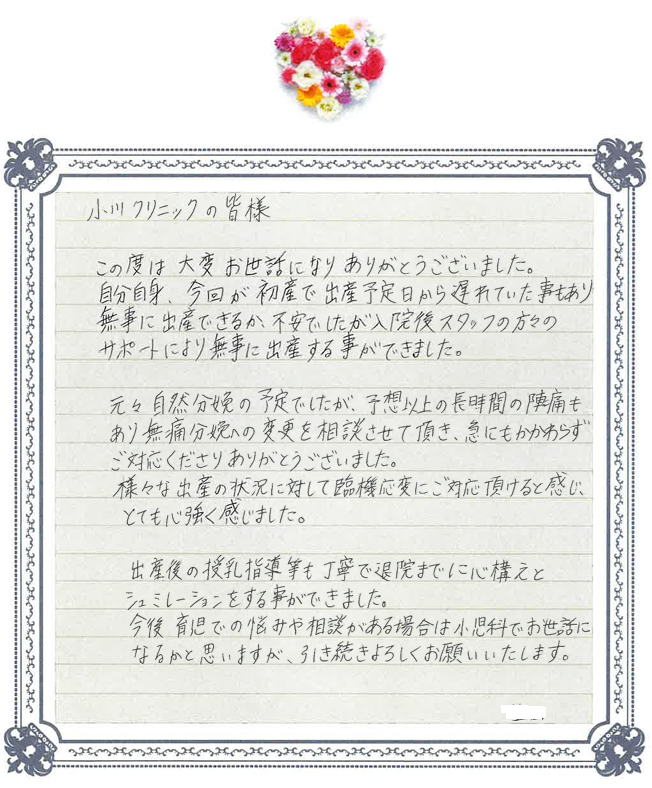 小川クリニックの皆様
この度は大変お世話になりありがとうございました。
自分自身、今回が初産で出産予定日から遅れていた事もあり
無事に出産できるか、不安でしたが入院後スタッフの方々の
サポートにより無事に出産する事ができました。
元々自然分娩の予定でしたが、予想以上の長時間の陣痛も
あり無痛分娩への変更を相談させて頂き、急にもかかわらず
ご対応くださりありがとうございました。
様々な出産の状況に対して臨機応変にご対応頂けると感じ、
とても心強く感じました。
出産後の授乳指導等も丁寧で退院までに心構えと
シュミレーションをする事ができました。
今後育児での悩みや相談がある場合は小児科でお世話に
なるかと思いますが、引き続きよろしくお願いいたします。